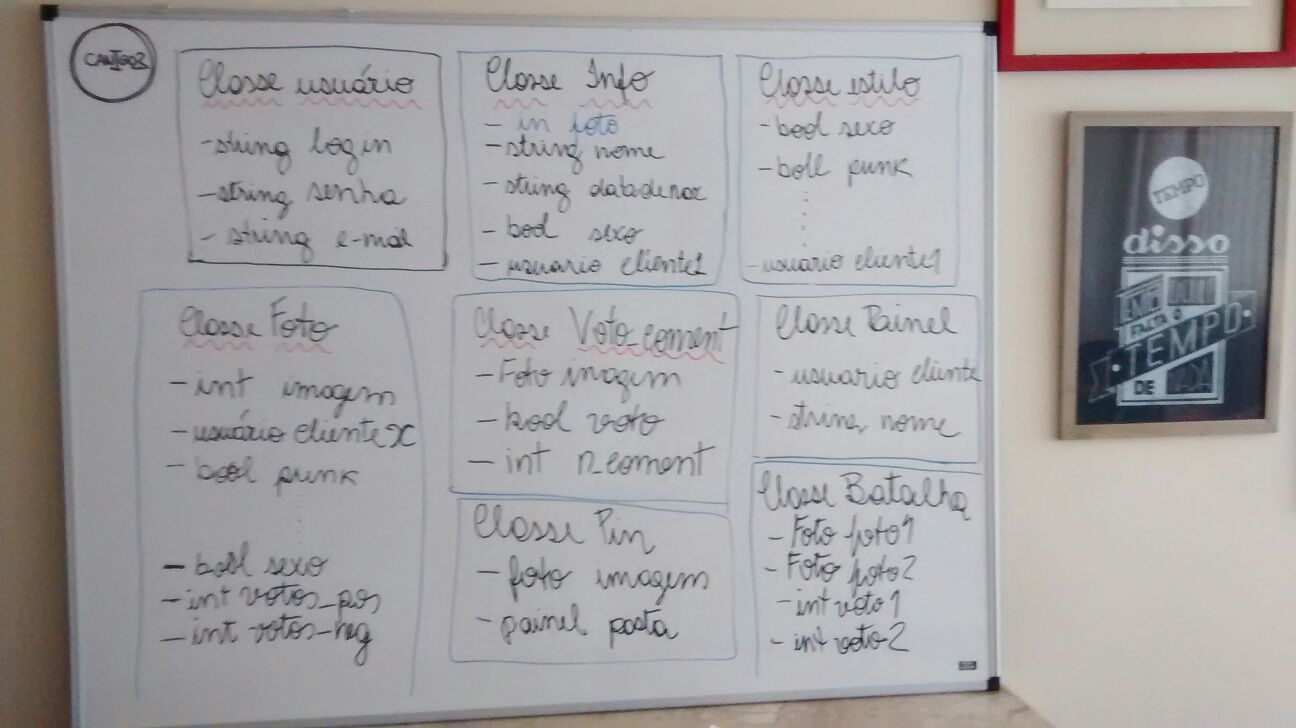 CANTGOR
Classe usuário
- string login
- string senha
- string e-mail
Classe Info
- in foto
- string nome
- string datadenac
- bool sexo
- usuario cliente1
Classe estilo
- bool sexo
- boll punk
- usuario cliente1
Classe Foto
- int imagem
- usuário clienteX
- bool punk
- bool sexo
- int votos_pos
- int votos_neg
Classe Voto_coment
- Foto imagem
- bool voto
- int n_coment
Classe Painel
- usuario cliente
- string nome
Classe Pin
- foto imagem
- painel pasta
Classe Batalha
- Foto foto1
- Foto foto2
- int voto1
- int voto2
TEMPO
disso
FALTA O
TEMPO
DE